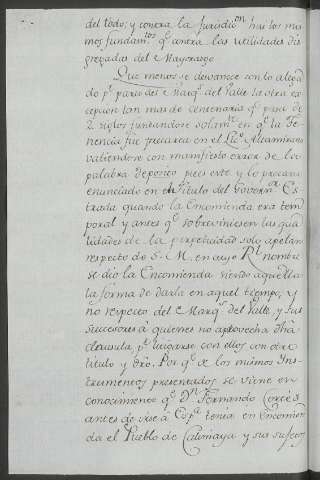 del todo; y contra la Jurisdic.on hai los mis
mos fundam.tos q.e contra las utilidades dis
gregadas del Mayorasgo
Que menos se desvanece con lo alega
do p.r parte del Marq.s del Valle la otra ex
cepcion tan mas de centenaria q.e pasa de
2. siglos fundandose solam.te en q.e la Te
nencia fue precaria en el Lic.o Altamirano
valiendose con manifiesto error de la
palabra deposito pues este y lo precario
enunciado en el titulo del Govern.or Es
trada quando la Encomienda era tem
poral y antes q.e sobreviniesen las qua
lidades de la perpetuidad solo apelan
respecto de S. M. en cuyo R.l nombre
se dio la Encomienda siendo aquella
la forma de darla en aquel tiempo, y
no respecto del Marq.s del Valle, y sus
succesores á quienes no aprovecha dha
clausula, p.r litigarse con ellos con otro
titulo y dro. Por q.e de los mismos Ins
trumentos presentados se viene en
conocimiento q.e D.n Fernando Cortés
antes de irse á Esp.a tenia en Encomien
da el Pueblo de Calimaya y sus sujetos